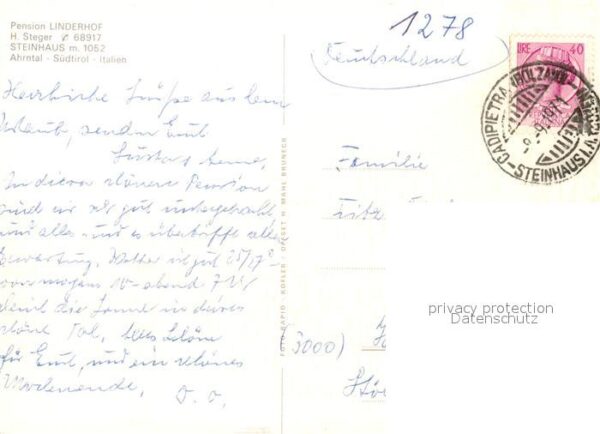 Pension LINDERHOF
H. Steger ✆ 68917
STEINHAUS m. 1052
Ahrntal - Südtirol - Italien
1278
Deutschland
LIRE 40
CADIPIETRA (BOLZANO)
STEINHAUS I.
Herzliche Grüße aus dem
Urlaub, senden Euch
In dieser schönen Pension
sind wir sehr gut untergebracht
und alles und es übertrifft alle
Erwartung. Wetter ist gut 25/27°
von morgens 10 - abend 7 Uhr
scheint die Sonne in dieses
schöne Tal. Alles Schöne
für Euch, und ein schönes
Wochenende. D. O.
FOTO RAPID - KOFLER - OFFSET H. MAHL BRUNECK
Familie
Fritz
3000)
privacy protection
Datenschutz